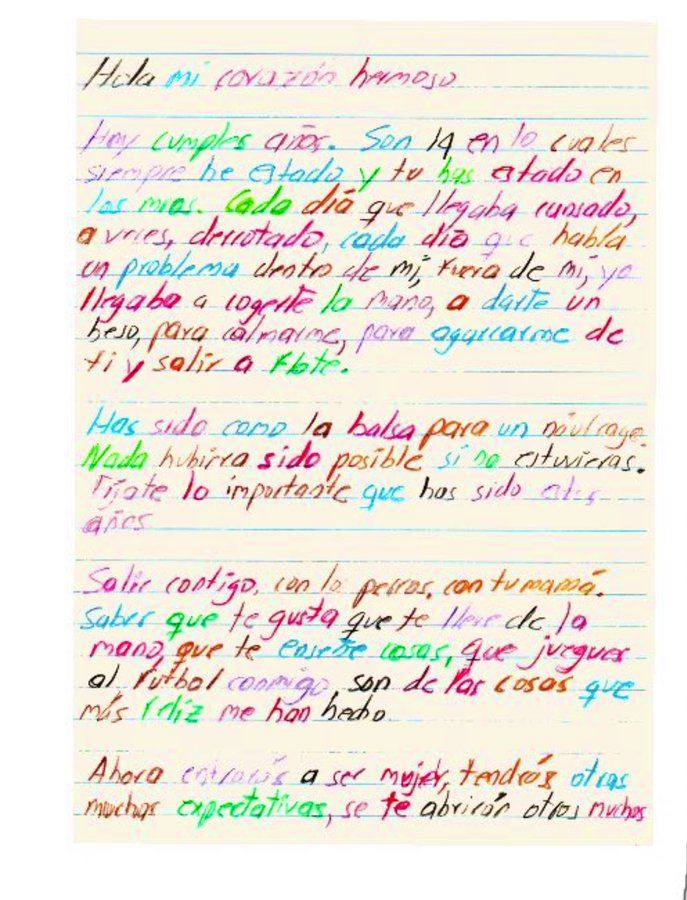 Hola mi corazón hermoso
Hoy cumples años. Son 14 en lo cuales
siempre he estado y tu has estado en
los mios. Cada día que llegaba cansado,
a veces, derrotado, cada día que había
un problema dentro de mi, fuera de mi, yo
llegaba a cogerte la mano, a darte un
beso, para calmarme, para agarrarme de
ti y salir a flote.
Has sido como la balsa para un náufrago.
Nada hubiera sido posible si no estuvieras.
Fíjate lo importante que has sido estos
años
Salir contigo, con lo perros, con tu mamá.
Saber que te gusta que te lleve de la
mano, que te enseñe cosas, que juegues
al futbol conmigo, son de las cosas que
más feliz me han hecho
Ahora entrarás a ser mujer, tendrás otras
muchas expectativas, se te abrirán otros muchos